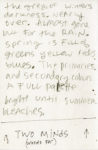 the grey of winters
darkness, nearly
over. Almost time
but for the RAIN.
Spring is full
greens yellow reds
blues. The primaries
and secondary colors
A full palette
bright until summer
bleaches.
↑ TWO MINDS ↑